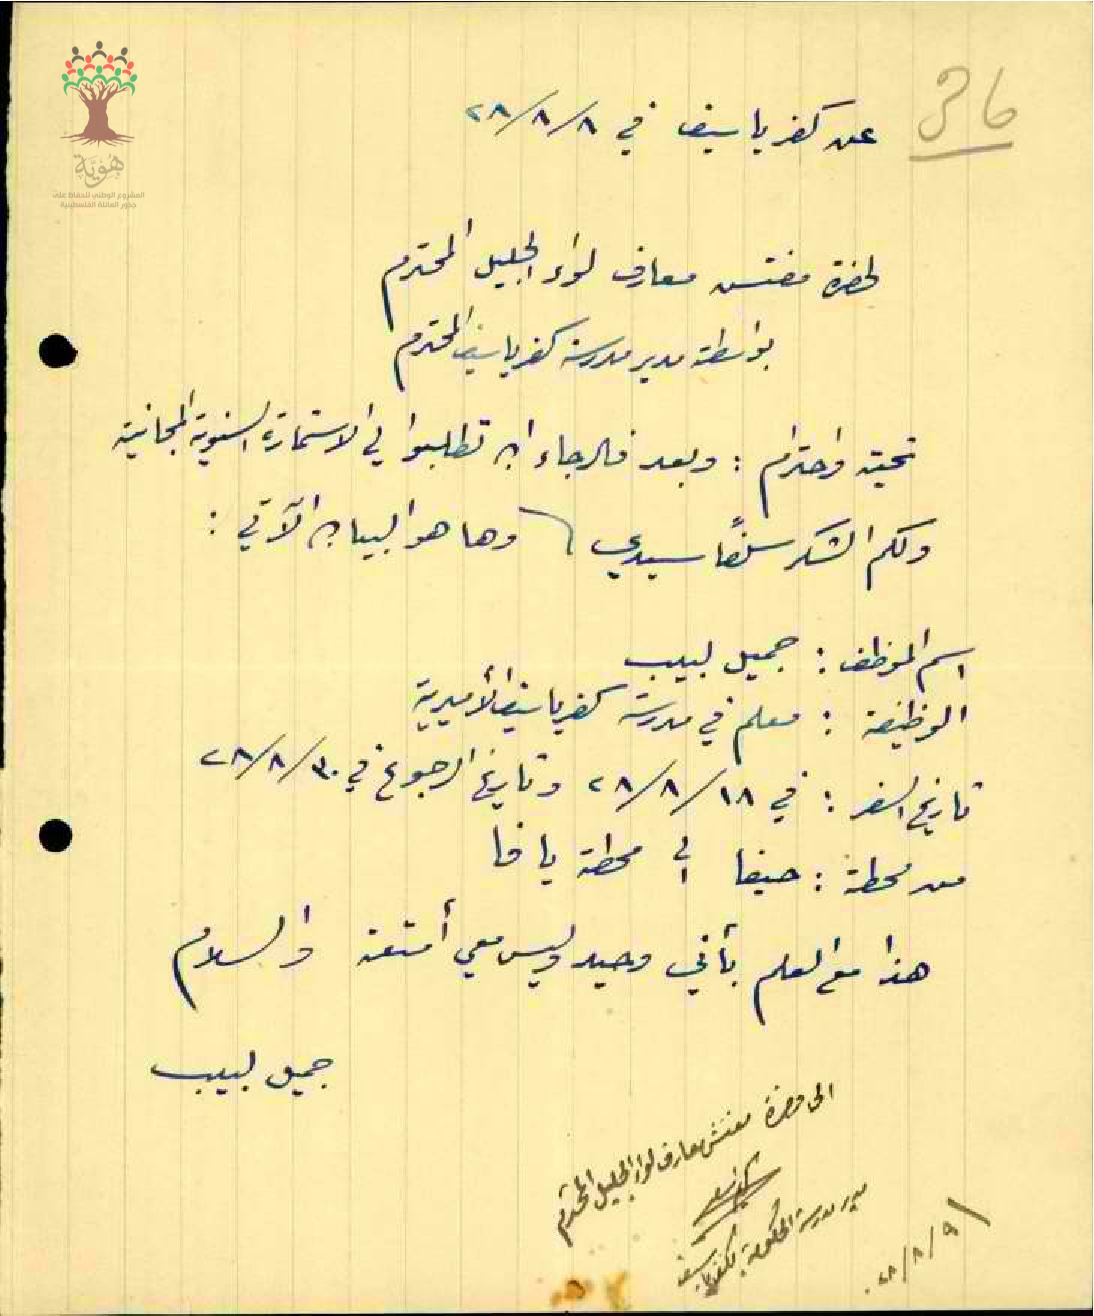 عن كفرياسيف في ٨/٨/٢٨
هُوِيَّة
المشروع الوطني للحفاظ على
جذور العائلة الفلسطينية
لحضرة مفتش معارف لواء الجليل المحترم
بواسطة مدير مدرسة كفرياسيف المحترم
تحية واحترام : وبعد فالرجاء ان تطلبوا لي الاستمارة السنوية المجانية
ولكم الشكر سلفاً سيدي وها هو البيان الآتي :
اسم الموظف : جميل لبيب
الوظيفة : معلم في مدرسة كفرياسيف الأميرية
تاريخ السفر : في ١٨/٨/٢٨ وتاريخ الرجوع في ٣٠/٨/٢٨
من محطة : حيفا الى محطة يافا
هذا مع العلم بأني وحيد وليس معي أمتعة والسلام
جميل لبيب
الى حضرة مفتش معارف لواء الجليل المحترم
مدير مدرسة الحكومة بكفرياسيف
٩/٨/٢٨